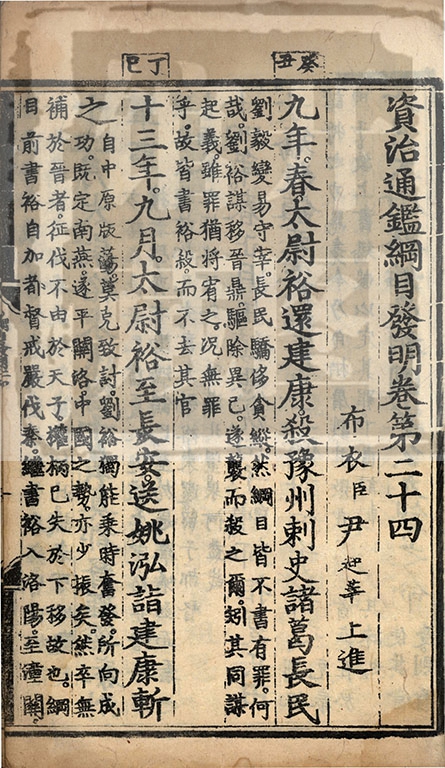 癸丑
丁巳
資治通鑑綱目發明卷第二十四
布衣臣尹起莘上進
九年春太尉裕還建康殺豫州刺史諸葛長民
劉毅變易守宰長民驕侈貪縱然綱目皆不書有罪何
哉劉裕謀移晉鼎驅除異己遂襲而殺之爾矧其同謀
起義雖罪猶將宥之况無罪
乎故皆書裕殺而不去其官
十三年九月太尉裕至長安送姚泓詣建康斬
之自中原版蕩莫克致討劉裕獨能乘時奮發所向成
功既定南燕遂平關洛中國之勢亦少振矣然卒無
補於晉者征伐不由於天子權柄已失於下移故也綱
目前書裕自加都督戒嚴伐秦繼書裕入洛陽至潼關